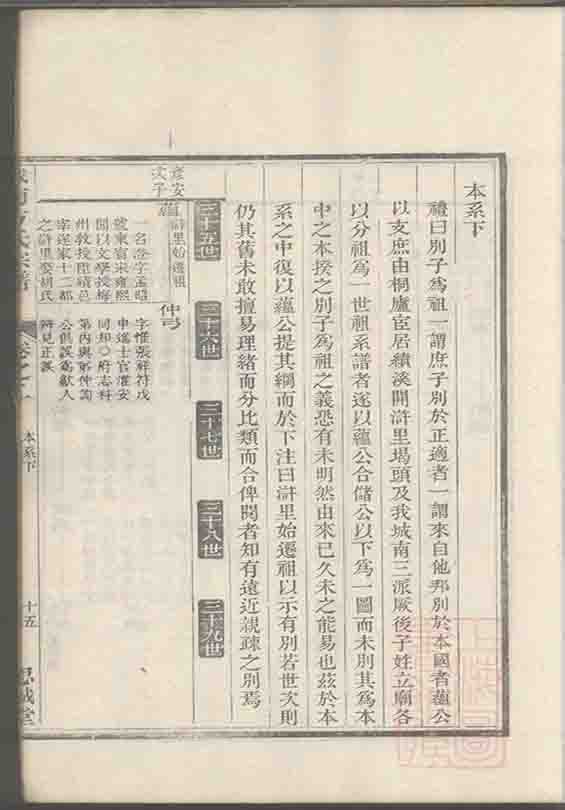 本系下
禮曰別子為祖一謂庶子別於正適者一謂來自他邦別於本國者蘊公
以支庶由桐廬宦居績溪開滸里堨頭及我城南三派厥後子姓立廟各
以分祖為一世祖系譜者遂以蘊公合儲公以下為一圖而未別其為本
中之本揆之別子為祖之義恐有未明然由來已久未之能易也茲於本
系之中復以蘊公提其綱而於下注曰滸里始遷祖以示有別若世次則
仍其舊未敢擅易理緒而分比類而合俾閱者知有遠近親疎之別焉
三十五世
三十六世
三十七世
三十八世
三十九世
彥安
文子
蘊
滸里始遷祖
仲弓
一名
字孟昭
號東齋宋雍熙
間以文學授
州教授
績邑
遂家十二都
之滸里娶胡氏
字惟張祥符戊
申進士官淮安
同知○府志科
第內與弟仲詢
公俱誤為歙人
辨見正誤
本系下
十五